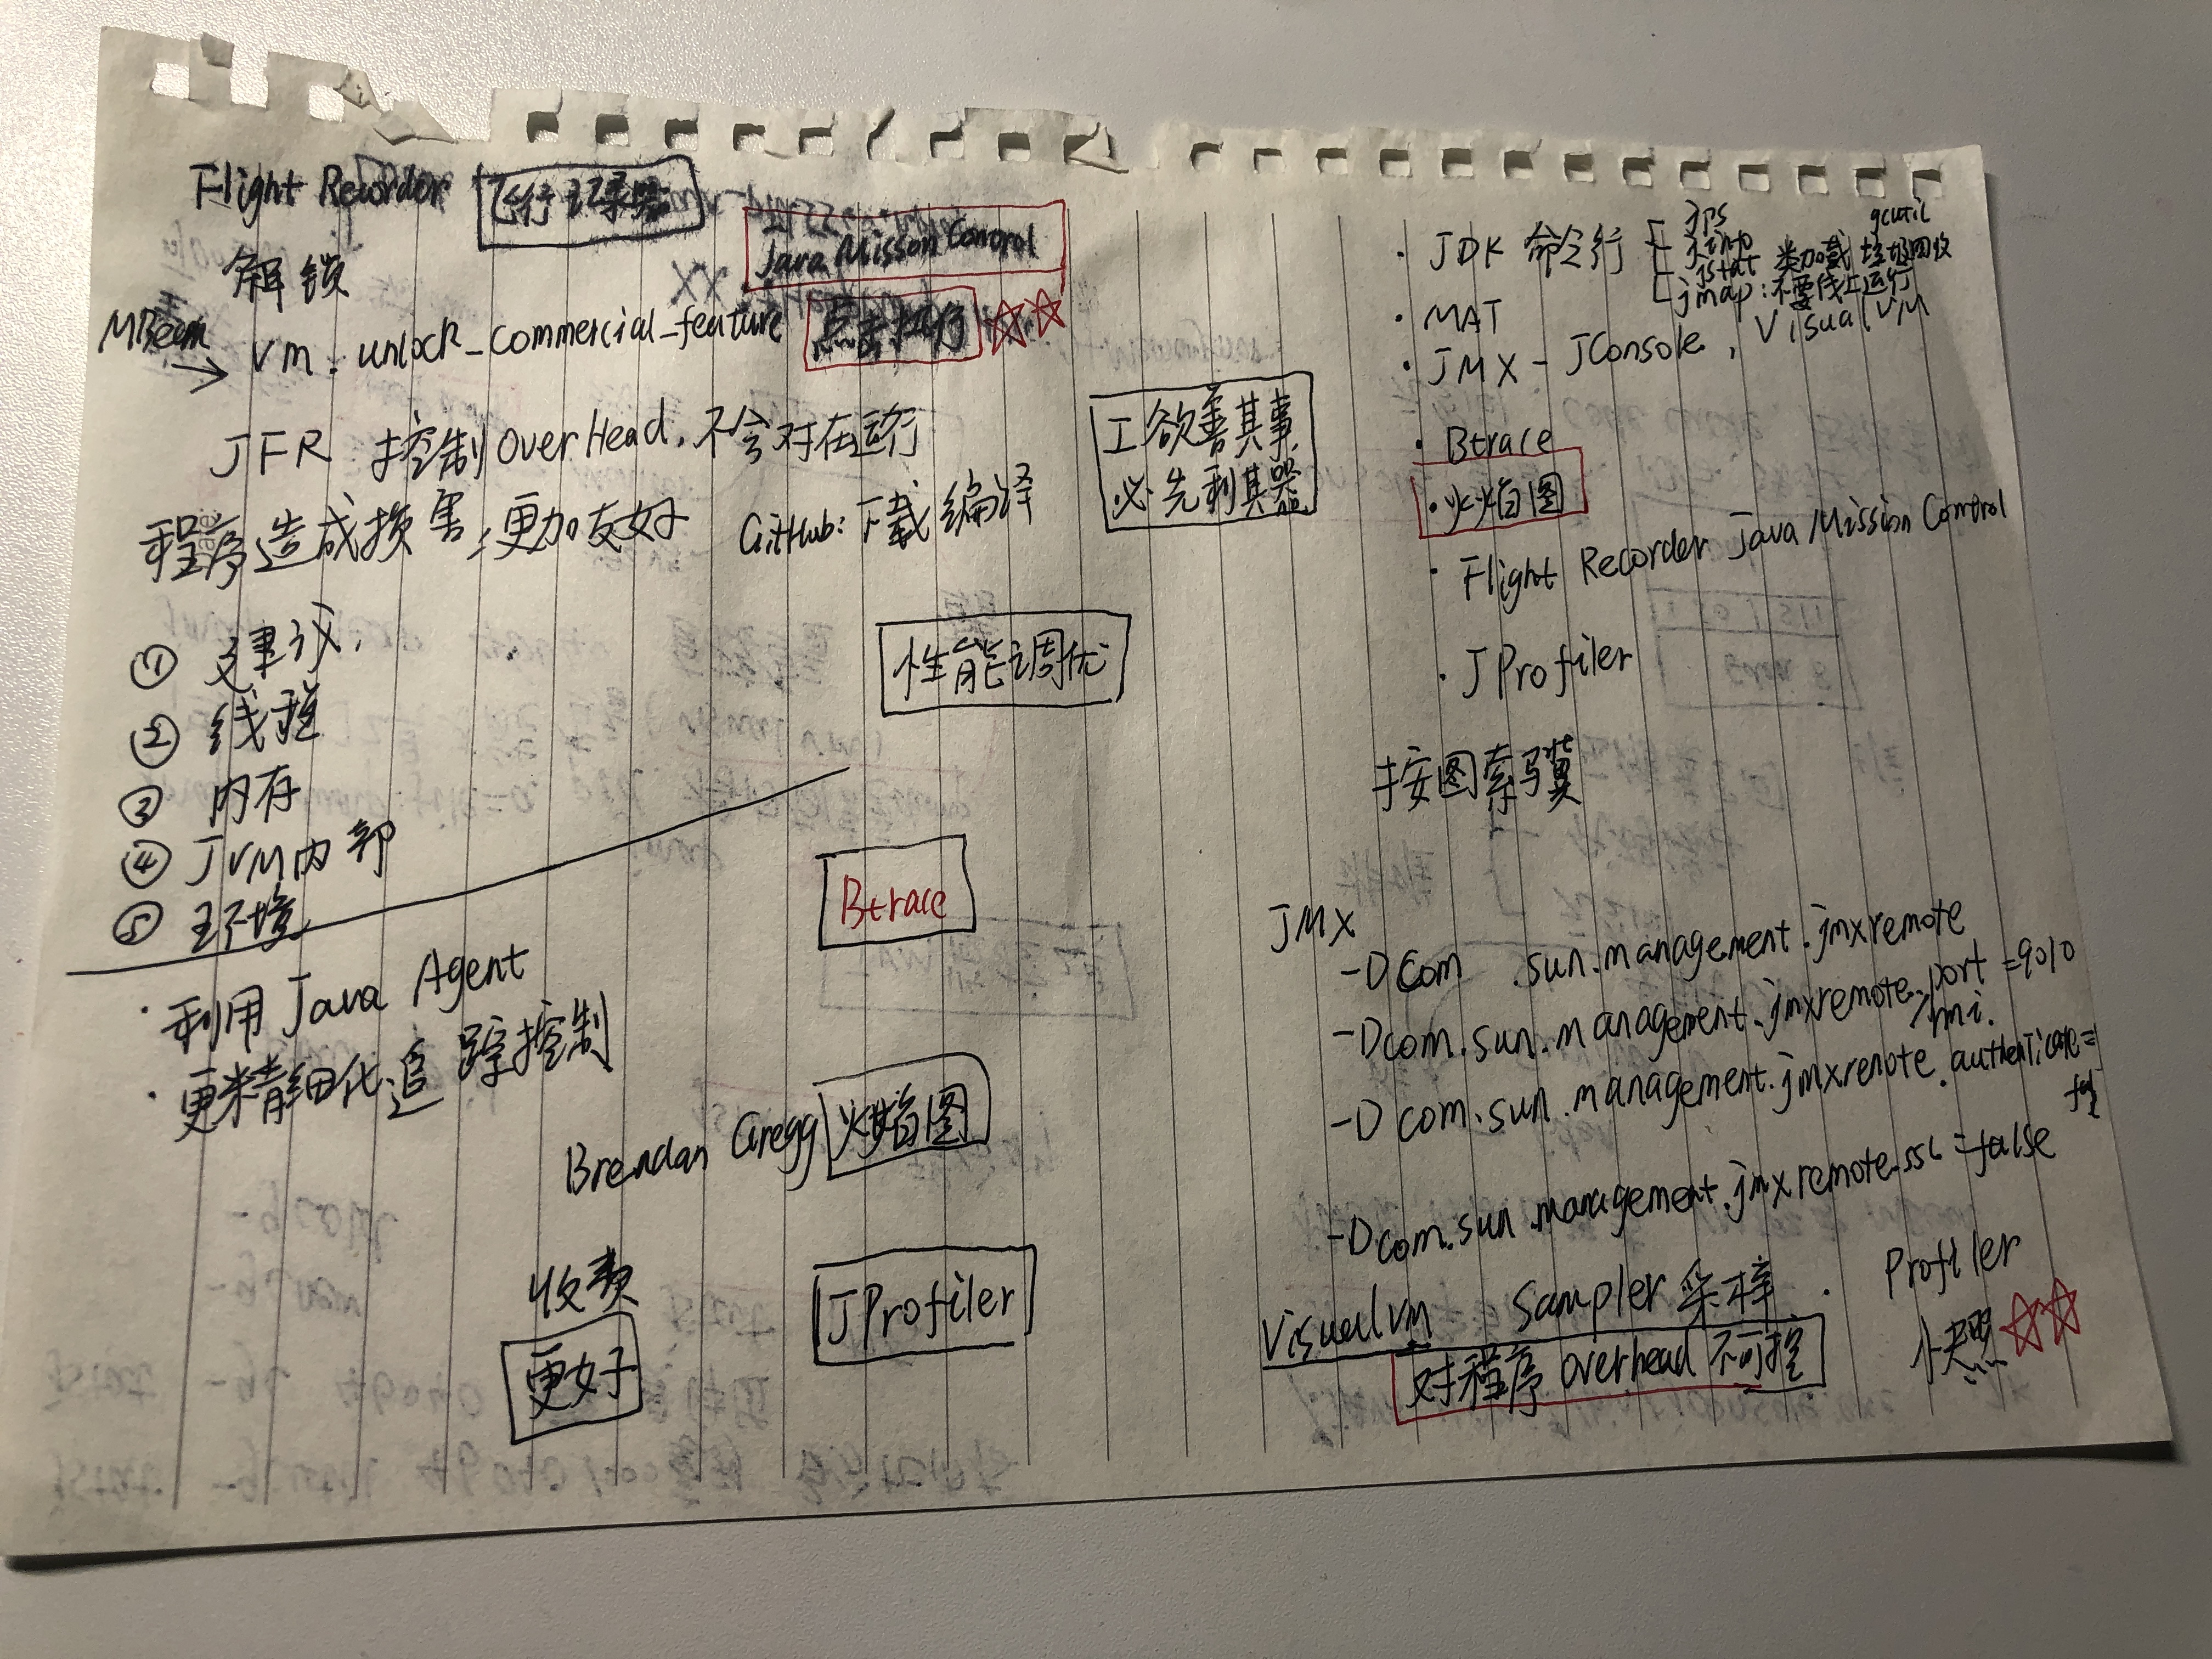 Flight Recorder 飞行记录器
Java Mission Control
解锁
MBean → VM: unlock_commercial_feature
JFR 控制 overHead. 不会对在运行
程序造成损害,更加友好 GitHub: 下载编译
① 文事件.
② 线程
③ 内存
④ JVM内部
⑤ 环境
性能调优
Btrace
· 利用 Java Agent
· 更精细化追踪控制
Brendan Gregg 火焰图
收费
更好
JProfiler
工欲善其事
必先利其器
· JDK 命令行
jps
jinfo
jstat 类加载 垃圾回收 gcutil
jmap: 不要线上运行
· MAT
· JMX - JConsole, VisualVM
· Btrace
· 火焰图
· Flight Recorder Java Mission Control
· JProfiler
按图索骥
JMX
-Dcom.sun.management.jmxremote
-Dcom.sun.management.jmxremote.port=9010
-Dcom.sun.management.jmxremote.authenticate=
-Dcom.sun.management.jmxremote.ssl=false
Visualvm Sampler 采样 Profiler
对程序 overhead 不可控